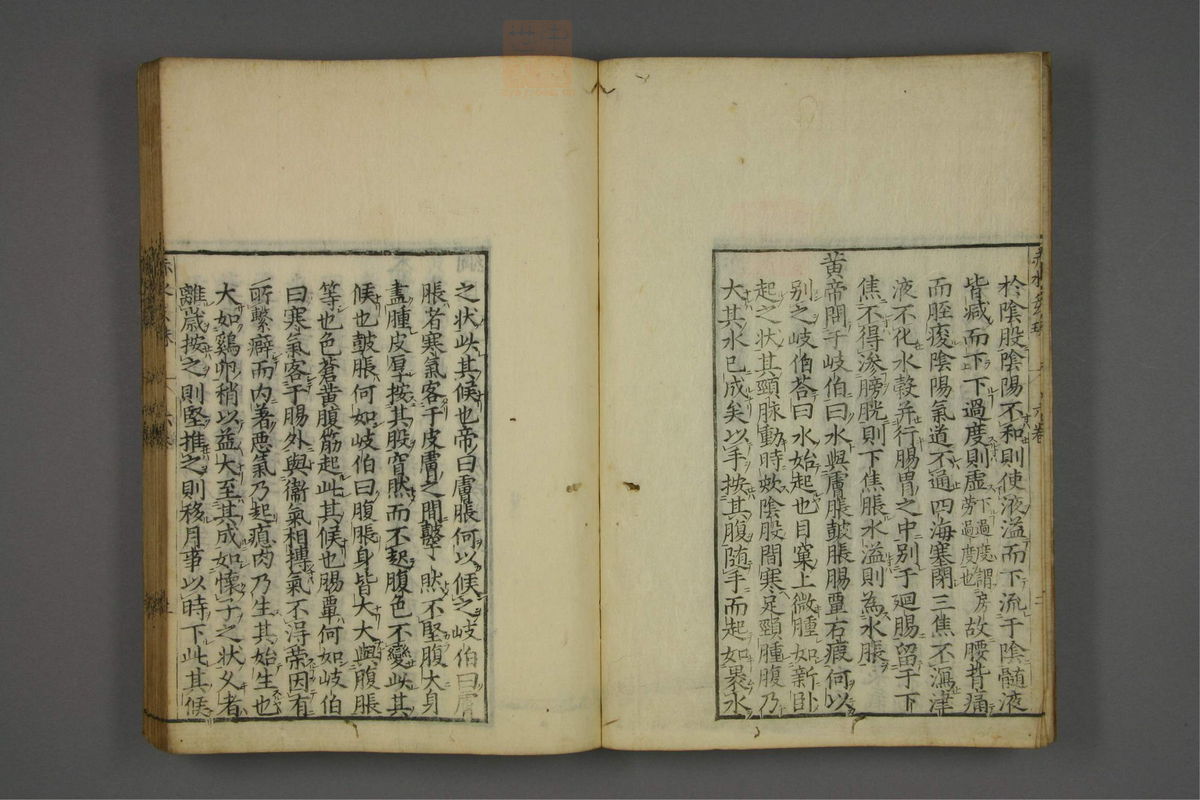 於陰股陰陽不和則使液溢而下流于陰髓液
皆减而下下過度則虛下過度謂房勞過度也故腰背痛
而脛痠陰陽氣道不通四海塞閉三焦不瀉津
液不化水穀并行腸胃之中别于廻腸留于下
焦不得滲膀胱則下焦脹水溢則為水脹
黄帝問于岐伯曰水與膚脹鼓脹腸覃石瘕何以
别之岐伯荅曰水始起也目窠上微腫如新卧
起之状其頸脉動時欬陰股間寒足頸腫腹乃
大其水已成矣以手按其腹随手而起如裹水
之状此其候也帝曰膚脹何以候之岐伯曰膚
脹者寒氣客于皮膚之間然不堅腹大身
盡腫皮厚按其股窅然而不起腹色不變此其
候也鼓脹何如岐伯曰腹脹身皆大大與腹脹
等也色蒼黄腹筋起此其候也腸覃何如岐伯
曰寒氣客于腸外與衞氣相搏氣不淂荣因有
所繫癖而内著悪氣乃起瘜肉乃生其始生也
大如鷄卵稍以益大至其成如懷子之状久者
離歳按之則堅推之則移月事以時下此其候